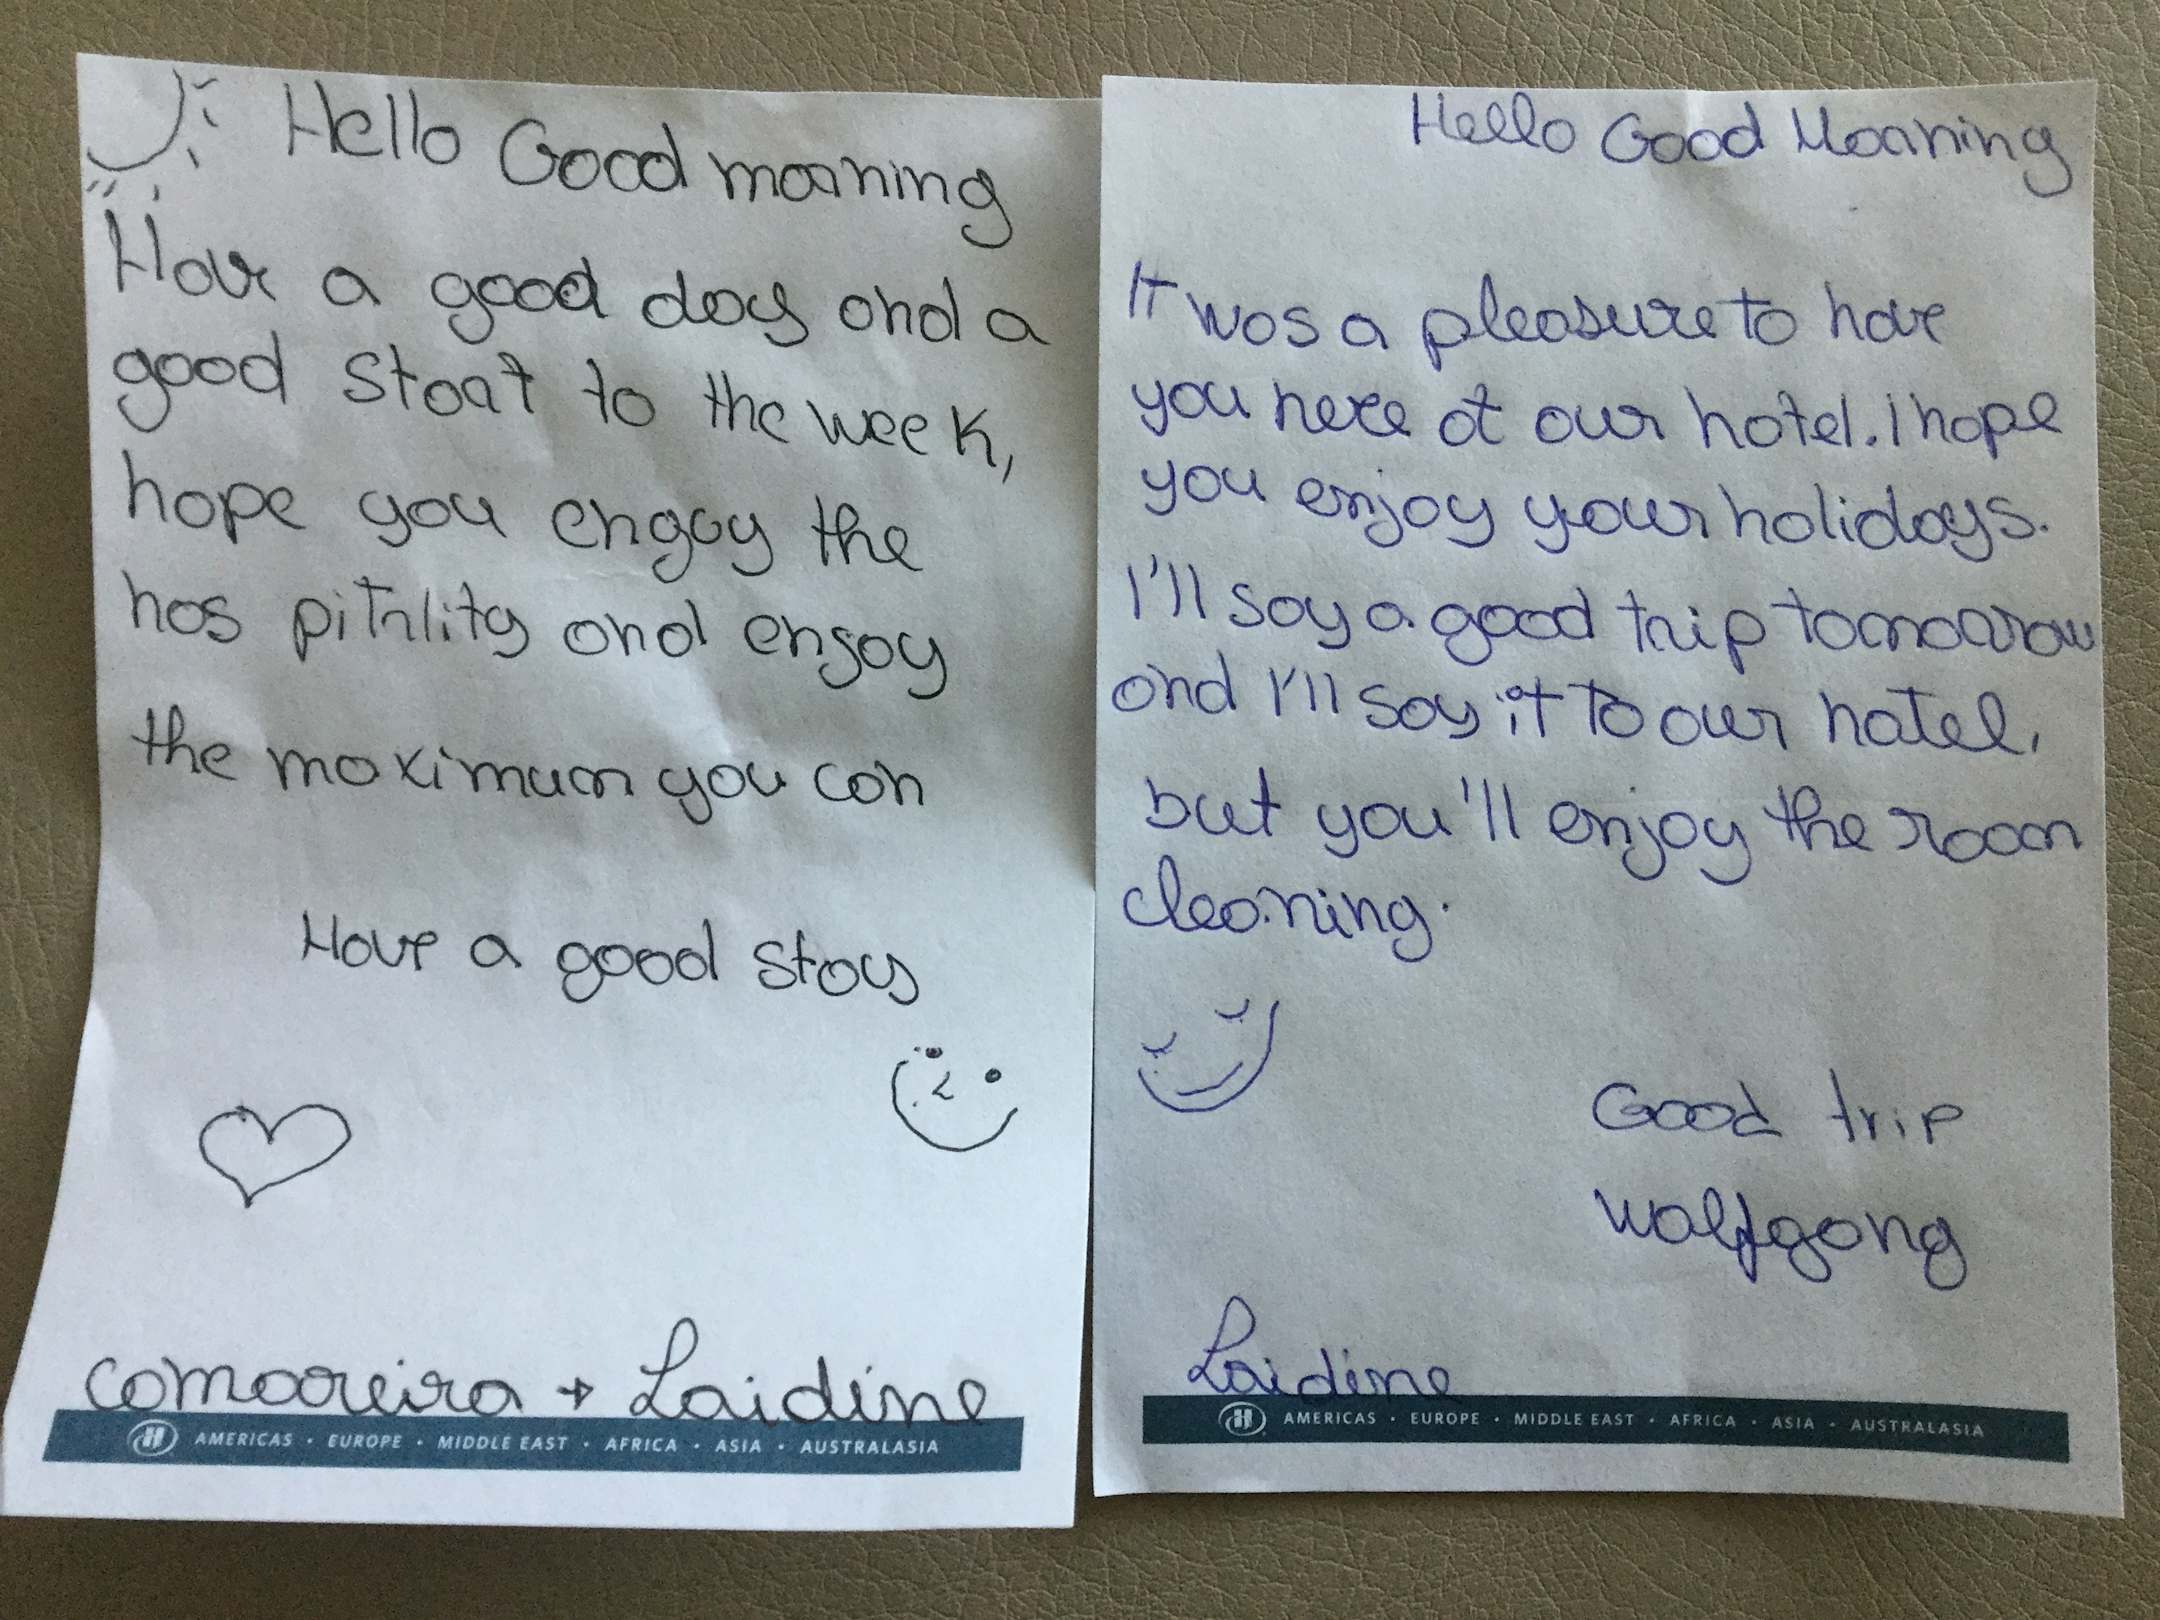 Hello Good morning
Have a good day and a
good start to the week,
hope you engoy the
hos pitality and enjoy
the maximum you can
Have a good stay
comareira + Laidine
AMERICAS · EUROPE · MIDDLE EAST · AFRICA · ASIA · AUSTRALASIA
Hello Good Morning
It was a pleasure to have
you here at our hotel. I hope
you enjoy your holidays.
I'll say a good trip tomorrow
and I'll say it to our hotel,
but you'll enjoy the room
cleaning.
Good trip
Wolfgang
Laidine
AMERICAS · EUROPE · MIDDLE EAST · AFRICA · ASIA · AUSTRALASIA